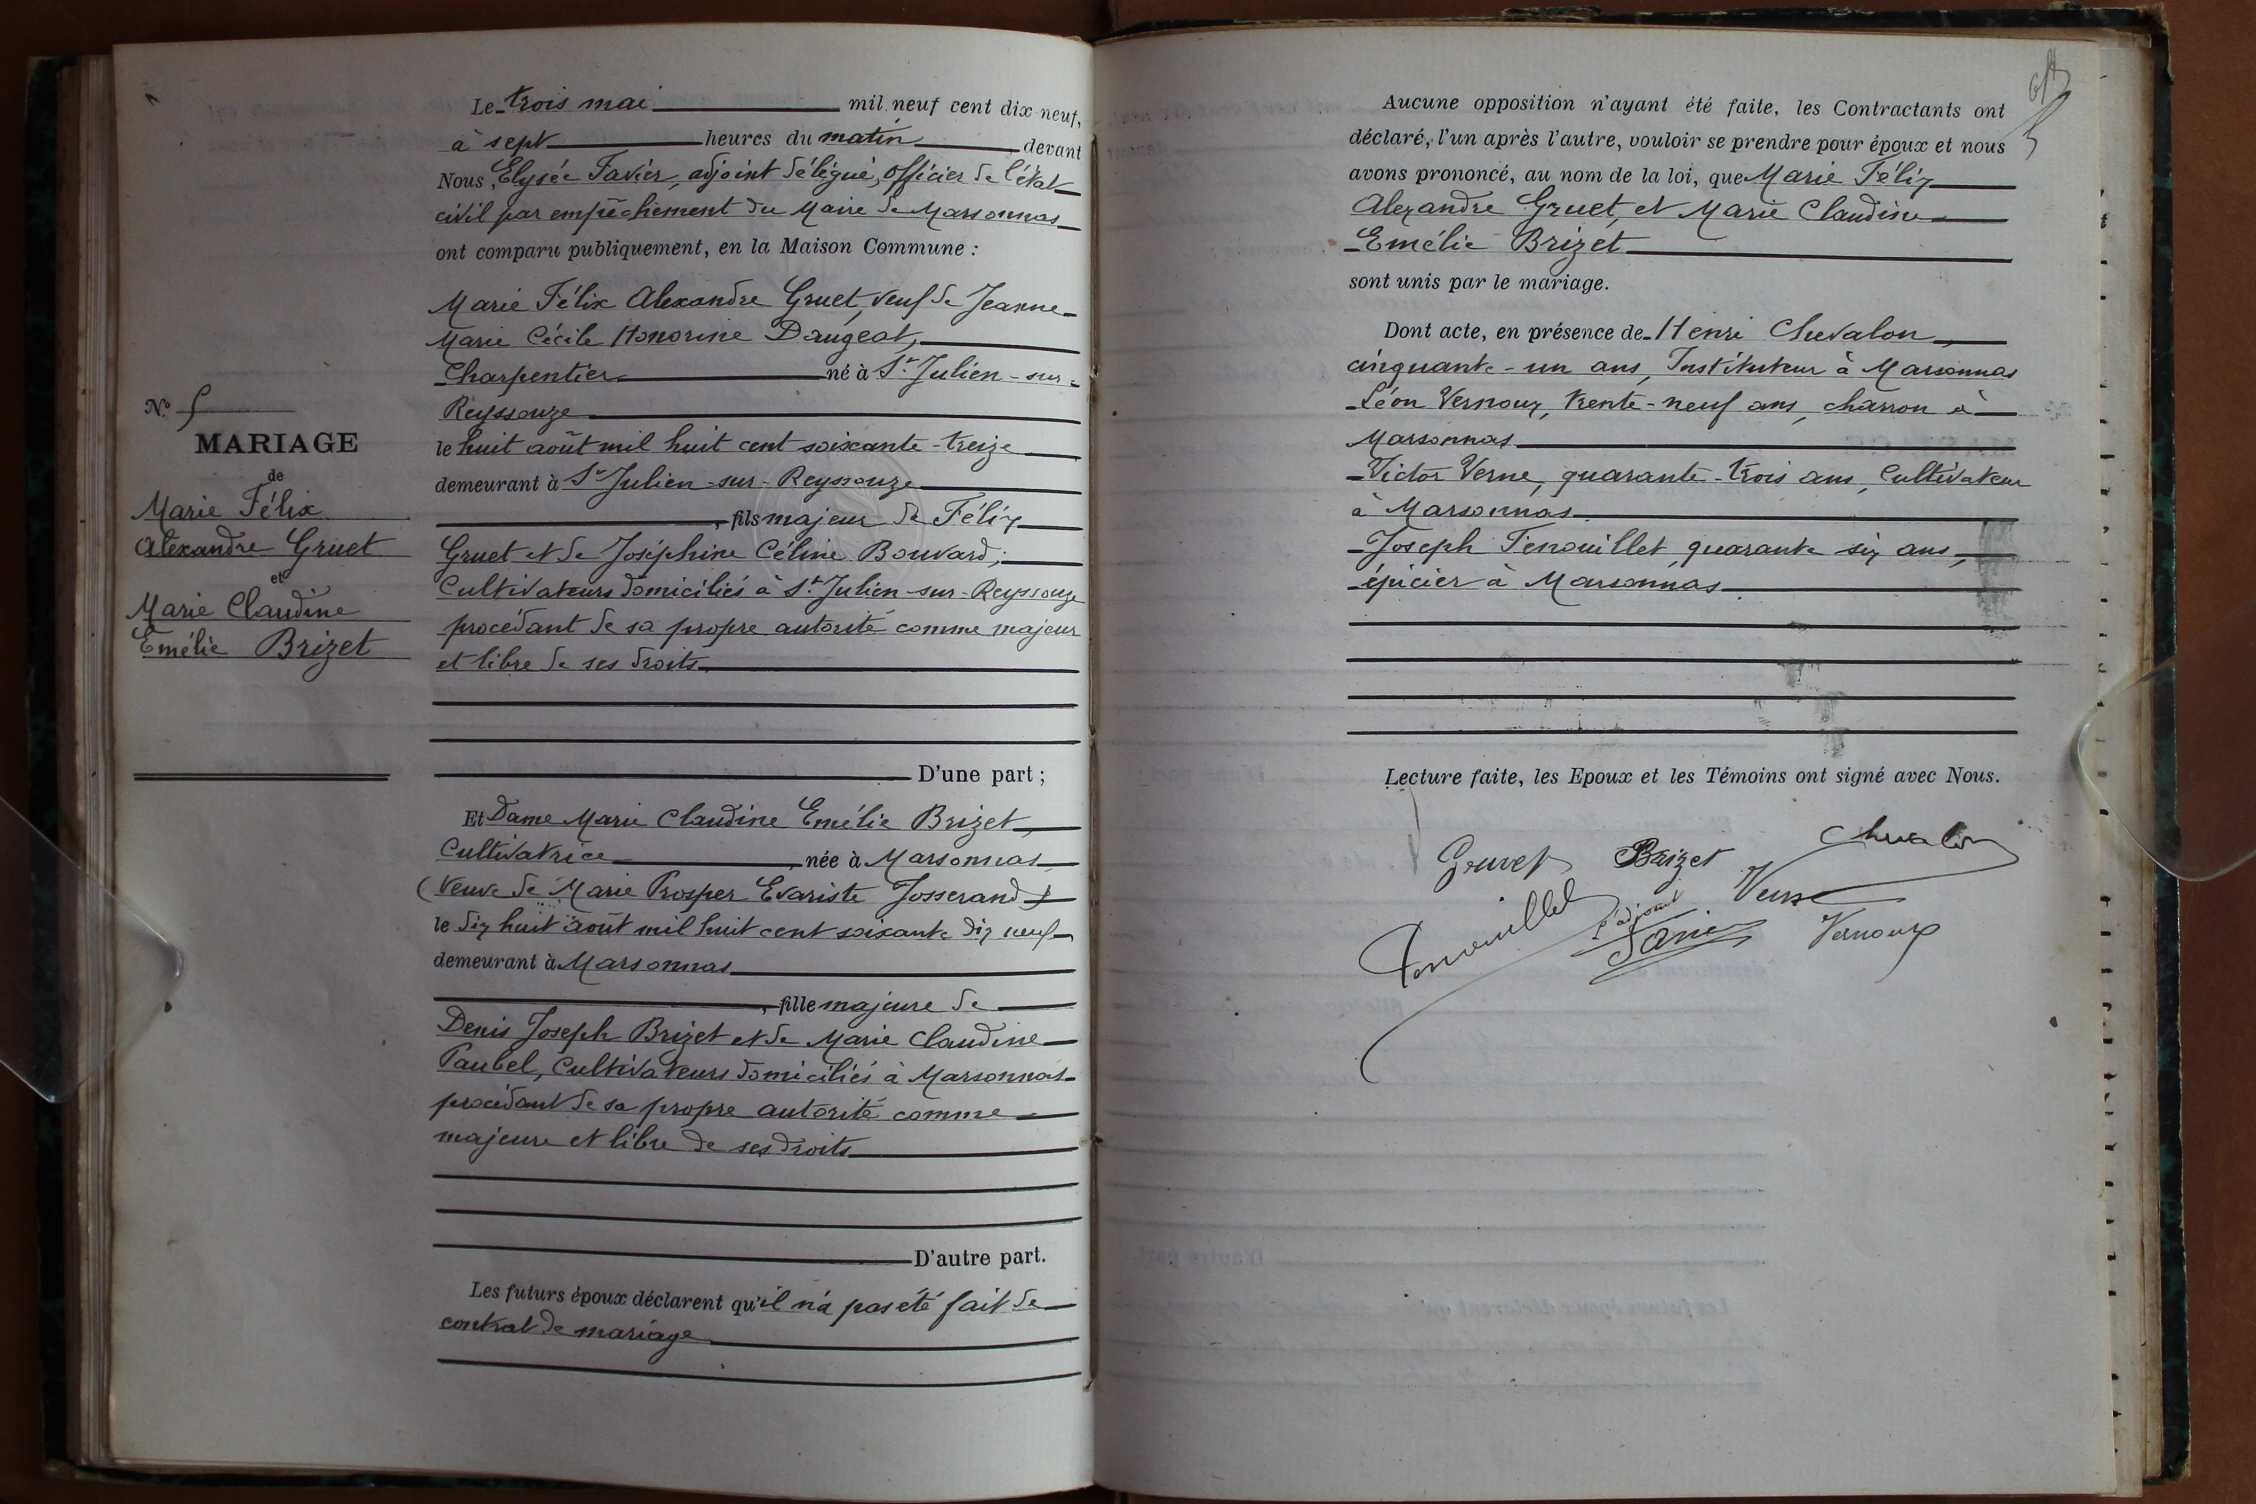 Le trois mai mil neuf cent dix neuf,
à sept heures du matin devant
Nous, Elysée Favier, adjoint délégué, officier de l'état
civil par empêchement du Maire de Marsonnas
ont comparu publiquement, en la Maison Commune :
Marie Félix Alexandre Gruet, veuf de Jeanne
Marie Cécile Honorine Daugeat,
Charpentier né à St Julien-sur-
Reyssouze
le huit août mil huit cent soixante-treize
demeurant à St Julien-sur-Reyssouze
, fils majeur de Félix
Gruet et de Joséphine Céline Bouvard,
Cultivateurs domiciliés à St Julien-sur-Reyssouze
procédant de sa propre autorité comme majeur
et libre de ses droits
D'une part ;
Et Dame Marie Claudine Emélie Brizet,
Cultivatrice, née à Marsonnas
(Veuve de Marie Prosper Evariste Josserand)
le dix huit août mil huit cent soixante dix neuf
demeurant à Marsonnas
, fille majeure de
Denis Joseph Brizet et de Marie Claudine
Paubel, Cultivateurs domiciliés à Marsonnas
procédant de sa propre autorité comme
majeure et libre de ses droits
D'autre part.
Les futurs époux déclarent qu'il n'a pas été fait de
contrat de mariage
No 5
MARIAGE
de
Marie Félix
Alexandre Gruet
et
Marie Claudine
Emélie Brizet
Aucune opposition n'ayant été faite, les Contractants ont
déclaré, l'un après l'autre, vouloir se prendre pour époux et nous
avons prononcé, au nom de la loi, que Marie Félix
Alexandre Gruet, et Marie Claudine
Emélie Brizet
sont unis par le mariage.
Dont acte, en présence de Henri Chevalon,
cinquante-un ans, Instituteur à Marsonnas
Léon Vernoux, trente-neuf ans, charron à
Marsonnas
Victor Verne, quarante-trois ans, Cultivateur
à Marsonnas
Joseph Fenouillet, quarante six ans,
épicier à Marsonnas
Lecture faite, les Epoux et les Témoins ont signé avec Nous.
Gruet Brizet Chevalon
Verne
Fenouillet l'adjoint
Favier Vernoux